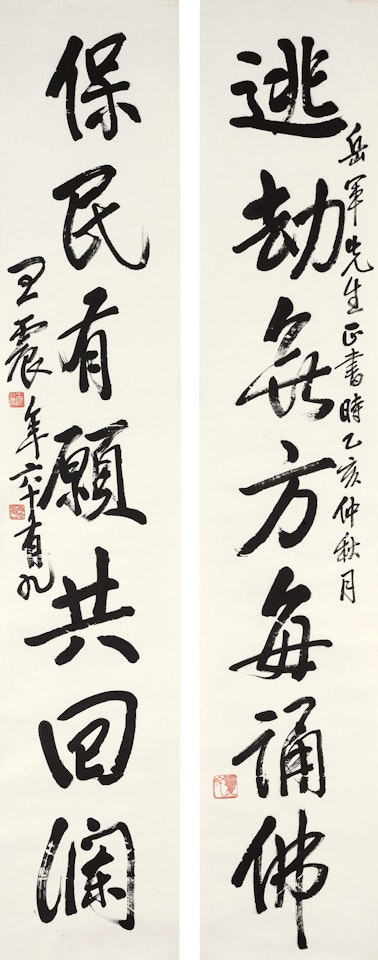 逃劫無方每誦佛
岳軍先生正書時乙亥仲秋月
保民有願共回瀾
王震年六十有九